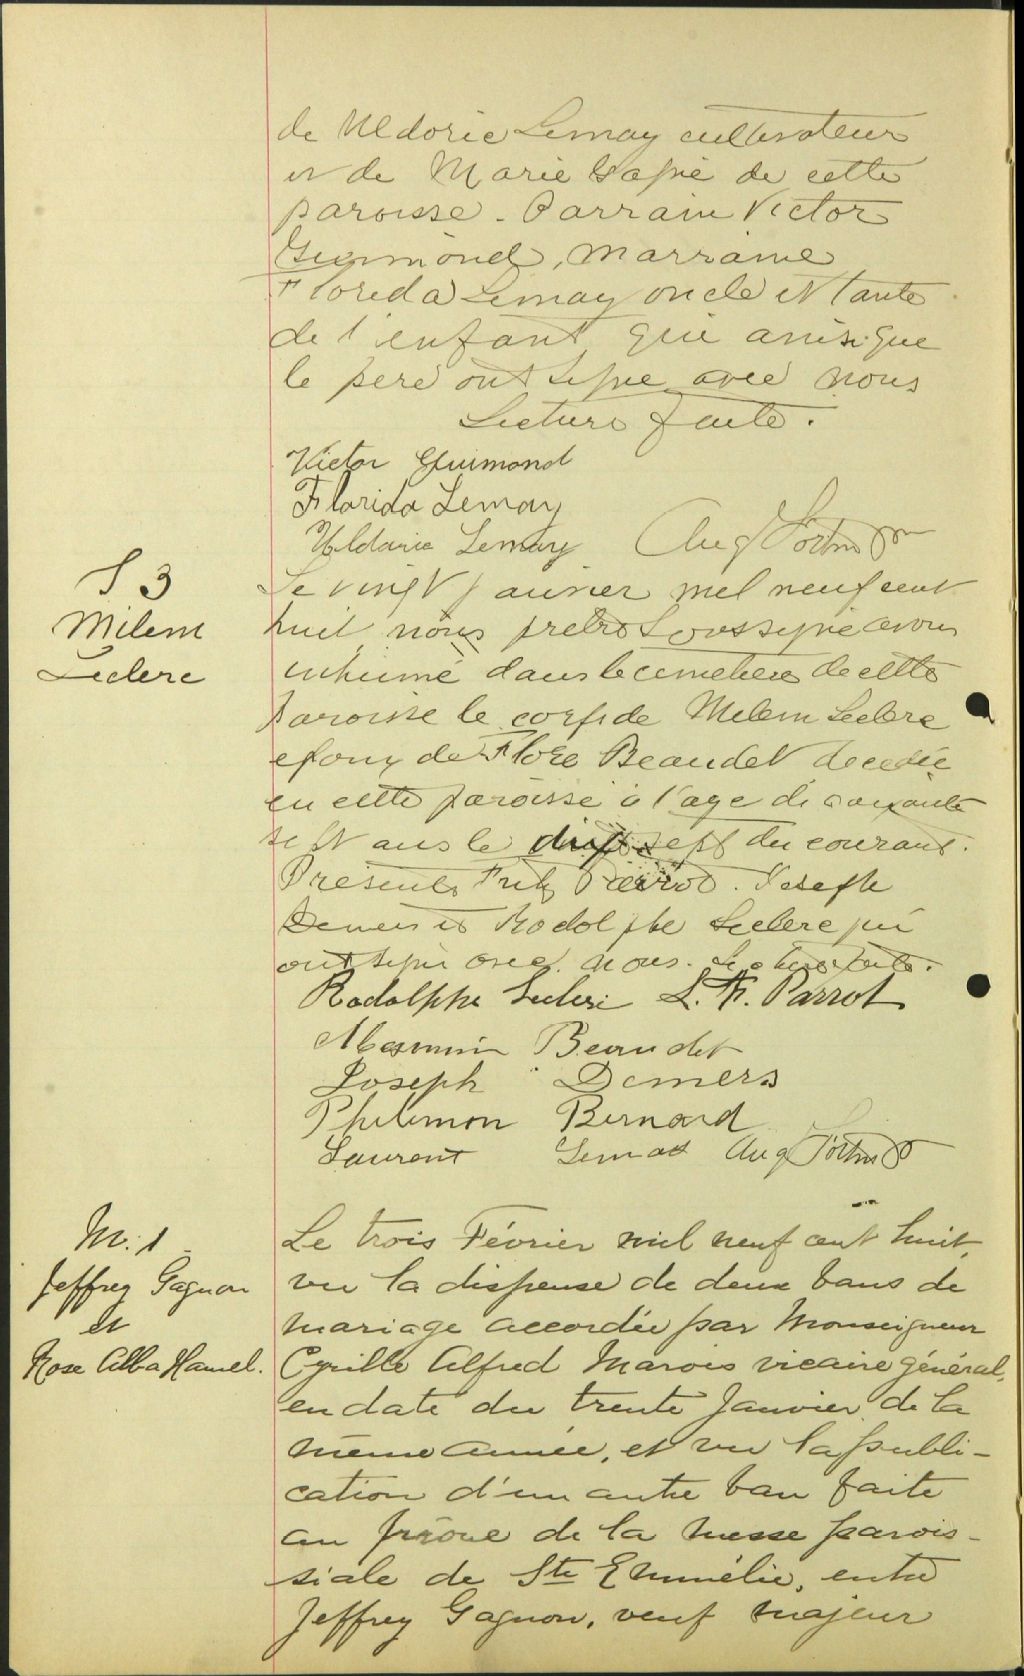 de Uldoric Lemay cultivateur
et de Marie de cette
paroisse. Parrain Victor
Guimond, marraine
Florida Lemay oncle et tante
de l'enfant qui ainsi que
le pere ont signe avec nous
Lecture faite.
Victor Guimond
Florida Lemay
Uldoric Lemay Aug
S 3
Milem
Leclerc
Le vingt janvier mil neuf cent
huit nous pretre soussigné avons
inhumé dans le cimetiere de cette
paroisse le corps de Milem Leclerc
epoux de Flore Beaudet decedé
en cette paroisse à l'age de soixante
sept ans le dix sept du courant.
Presents Fritz Parrot. Joseph
Demers et Rodolphe Leclerc qui
ont signé avec nous. Lecture faite.
Rodolphe Leclerc L. F. Parrot
Beaudet
Joseph Demers
Philemon Bernard
Laurent Lemay Aug
M. 1
Jeffrey Gagnon
et
Rose Alba Hamel.
Le trois Février mil neuf cent huit,
vu la dispense de deux bans de
mariage accordée par Monseigneur
Cyrille Alfred Marois vicaire général,
en date du trente Janvier de la
même année, et vu la publi-
cation d'un autre ban faite
au prône de la messe parois-
siale de Ste Emmélie, entre
Jeffrey Gagnon, veuf majeur